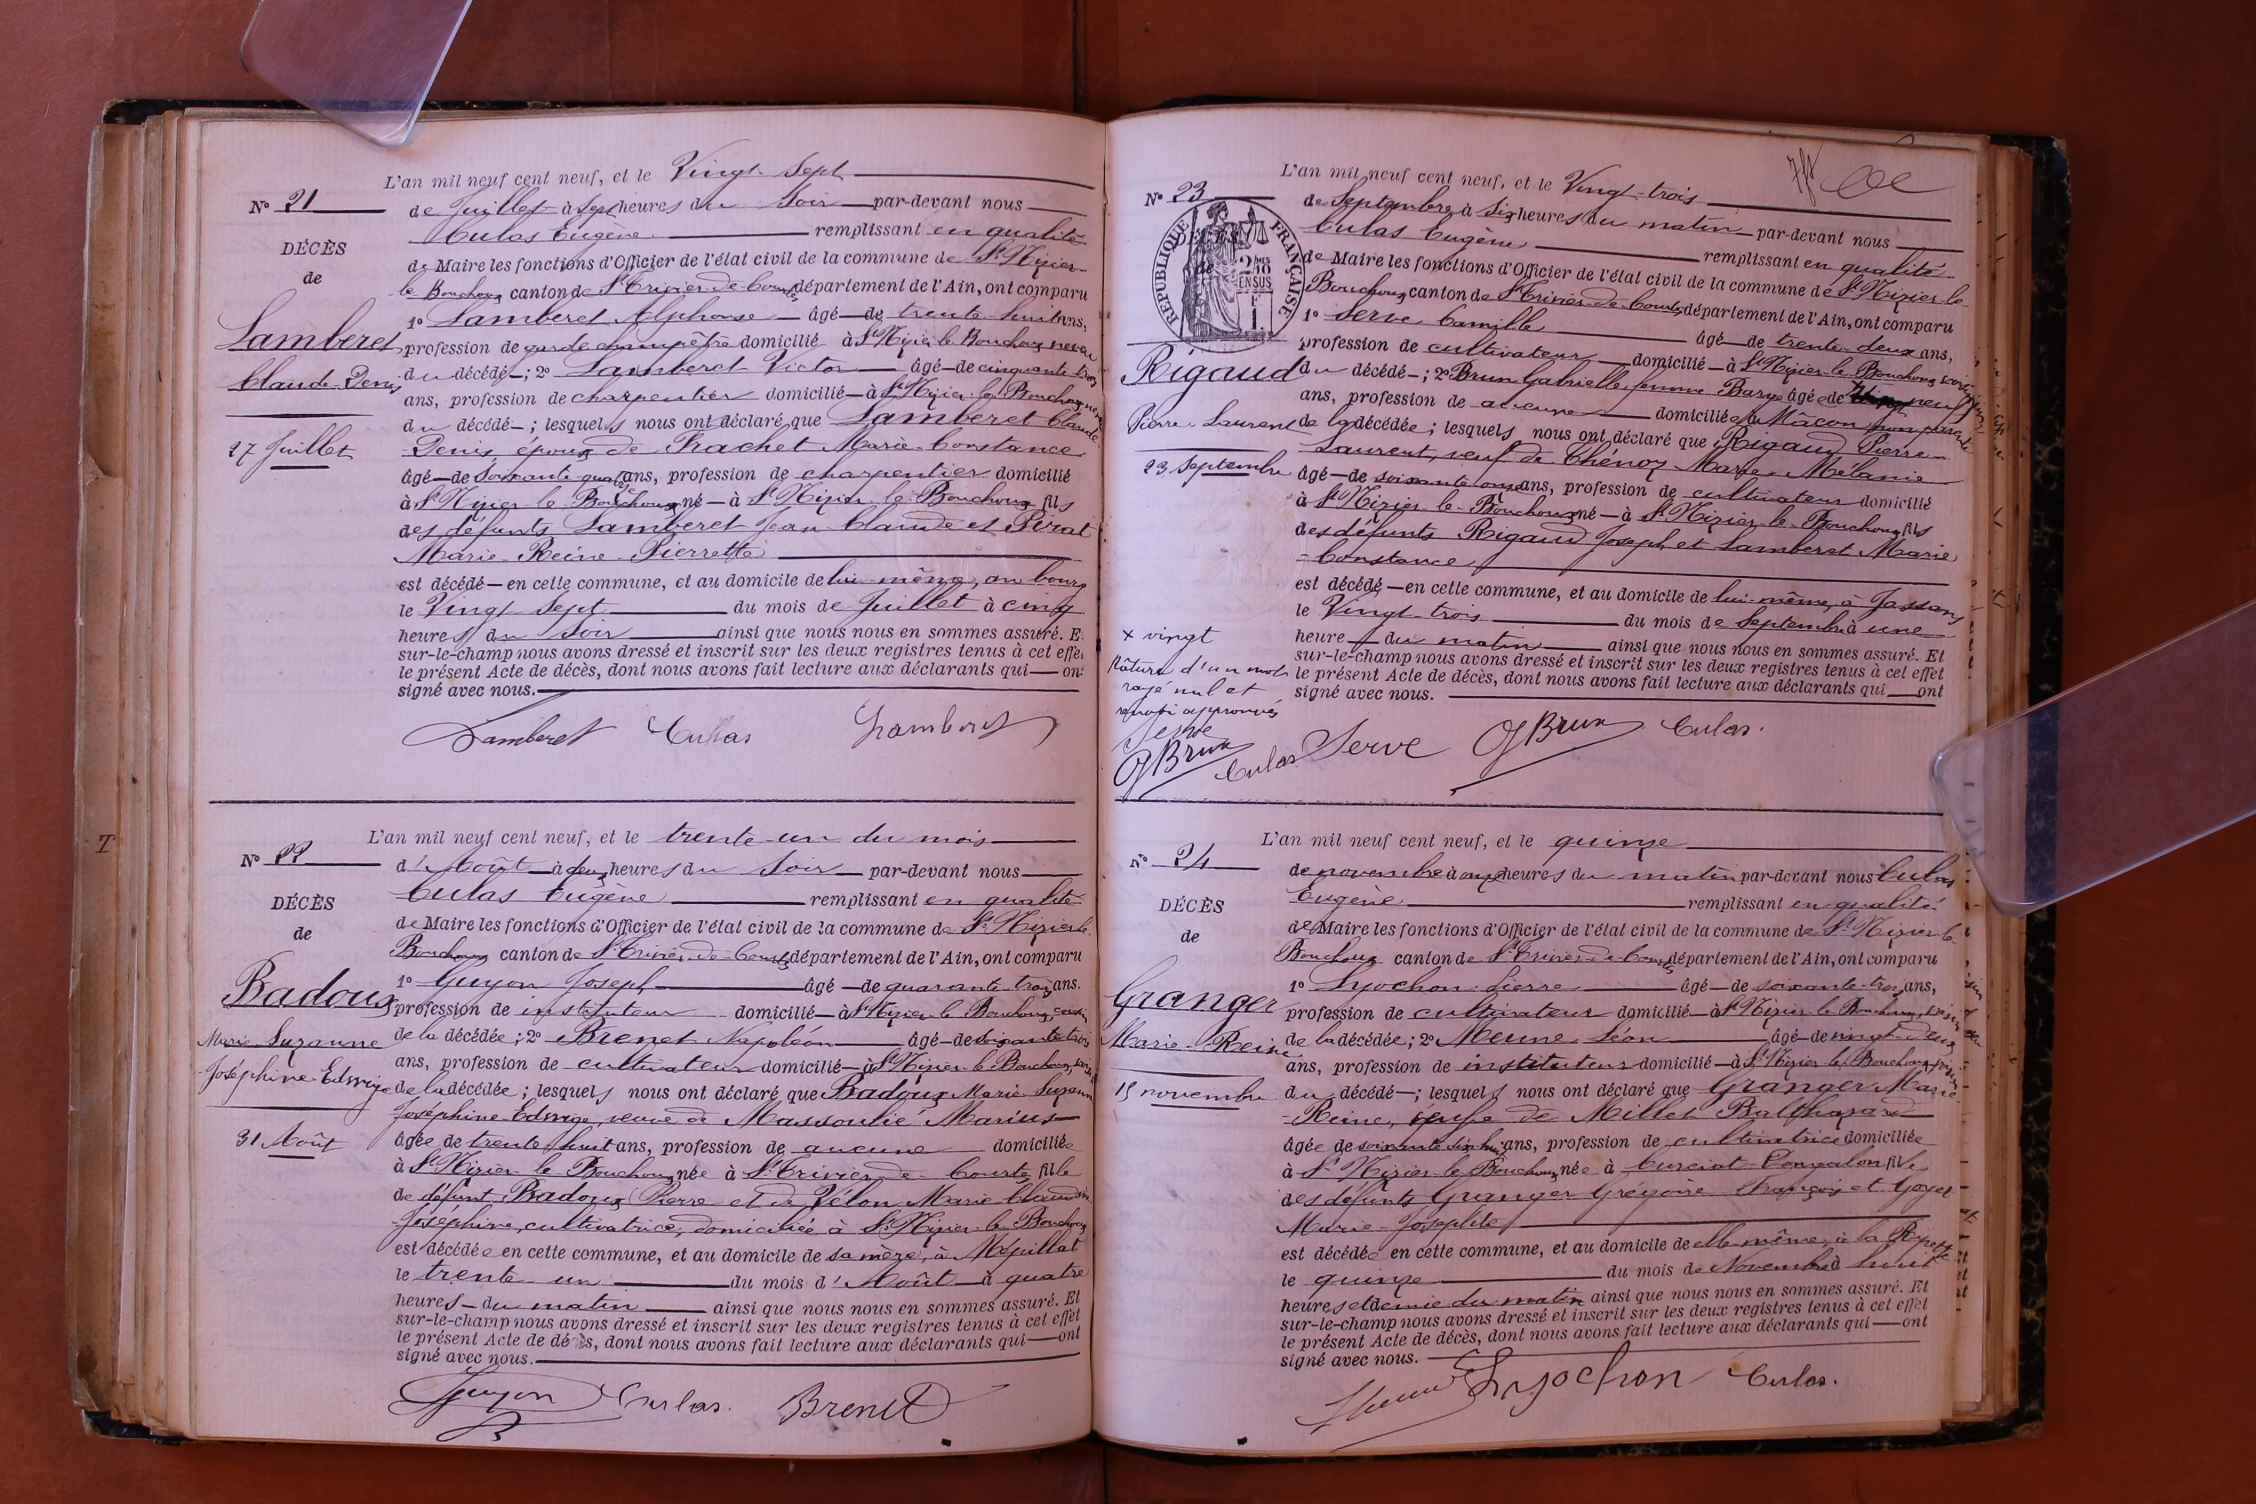 L'an mil neuf cent neuf, et le Vingt-Sept
N° 21
de Juillet à Sept heures du Soir par-devant nous
Culas Eugène remplissant en qualité
DÉCÈS
de Maire les fonctions d'Officier de l'état civil de la commune de St Nizier-
de
le Bouchoux canton de St Trivier-de-Courtes département de l'Ain, ont comparu
1° Lamberet Alphonse âgé de trente-huit ans,
Lamberet
profession de garde champêtre domicilié à St Nizier le Bouchoux neveu
du décédé ; 2° Lamberet Victor âgé de cinquante trois
Claude-Denis
ans, profession de charpentier domicilié à St Nizier le Bouchoux neveu
du décédé ; lesquels nous ont déclaré que Lamberet Claude-
27 Juillet
Denis, époux de Frachet Marie-Constance
âgé de Soixante quatre ans, profession de charpentier domicilié
à St Nizier le Bouchoux né à St Nizier le Bouchoux fils
des défunts Lamberet Jean Claude et Pirat
Marie-Reine-Pierrette
est décédé en cette commune, et au domicile de lui-même, au bourg
le Vingt Sept du mois de Juillet à cinq
heures du Soir ainsi que nous nous en sommes assuré. E
sur-le-champ nous avons dressé et inscrit sur les deux registres tenus à cet effet
le présent Acte de décès, dont nous avons fait lecture aux déclarants qui ont
signé avec nous.
Lamberet Culas Lamberet
L'an mil neuf cent neuf, et le trente-un du mois
N° 22
d'Août à deux heures du Soir par-devant nous
Culas Eugène remplissant en qualité
DÉCÈS
de Maire les fonctions d'Officier de l'état civil de la commune de St Nizier le
de
Bouchoux canton de St Trivier-de-Courtes département de l'Ain, ont comparu
1° Guyon Joseph âgé de quarante trois ans.
Badoux
profession de instituteur domicilié à St Nizier le Bouchoux
Marie Suzanne
de la décédée ; 2° Brenet Napoléon âgé de soixante trois
ans, profession de cultivateur domicilié à St Nizier le Bouchoux
Joséphine-Edwige
de la décédée ; lesquels nous ont déclaré que Badoux Marie Suzanne
Joséphine Edwige, veuve de Massoulié Marius
31 Août
âgée de trente huit ans, profession de aucune domiciliée
à St Nizier le Bouchoux née à St Trivier-de-Courtes fille
de défunt Badoux Pierre et de Vélon Marie Claudine
Joséphine, cultivatrice, domiciliée à St Nizier le Bouchoux
est décédée en cette commune, et au domicile de sa mère, à Mépillat
le trente-un du mois d'Août à quatre
heures du matin ainsi que nous nous en sommes assuré. Et
sur-le-champ nous avons dressé et inscrit sur les deux registres tenus à cet effet
le présent Acte de décès, dont nous avons fait lecture aux déclarants qui ont
signé avec nous.
Guyon Culas. Brenet
T
L'an mil neuf cent neuf, et le Vingt-trois
N° 23
de Septembre à Six heures du matin par-devant nous
Culas Eugène remplissant en qualité
RÉPUBLIQUE FRANÇAISE
DÉCÈS
de
de Maire les fonctions d'Officier de l'état civil de la commune de St Nizier-le-
Bouchoux canton de St Trivier-de-Courtes département de l'Ain, ont comparu
1° Serve Camille âgé de trente-deux ans,
profession de cultivateur domicilié à St Nizier le Bouchoux voisin
Rigaud
du décédé ; 2° Brun Gabrielle femme âgée de neuf
ans, profession de aucune domiciliée à Mâcon non parente
Pierre-Laurent
de la décédée ; lesquels nous ont déclaré que Rigaud Pierre-
Laurent, veuf de Thénoz Marie-Mélanie
23 Septembre
âgé de soixante onze ans, profession de cultivateur domicilié
à St Nizier-le-Bouchoux né à St Nizier-le-Bouchoux fils
des défunts Rigaud Joseph et Lamberet Marie
-Constance
est décédé en cette commune, et au domicile de lui-même, à Jassans
le Vingt-trois du mois de Septembre à une
heure du matin ainsi que nous nous en sommes assuré. Et
sur-le-champ nous avons dressé et inscrit sur les deux registres tenus à cet effet
le présent Acte de décès, dont nous avons fait lecture aux déclarants qui ont
signé avec nous.
x vingt
Râture d'un mot
rayé nul et
renvoi approuvés
Serve
GBrun Culas
Serve GBrun Culas.
L'an mil neuf cent neuf, et le quinze
N° 24
de novembre à onze heures du matin par-devant nous Culas
Eugène remplissant en qualité
DÉCÈS
de Maire les fonctions d'Officier de l'état civil de la commune de St Nizier-le-
de
Bouchoux canton de St Trivier-de-Courtes département de l'Ain, ont comparu
1° Lyochon Pierre âgé de soixante-trois ans,
Granger
profession de cultivateur domicilié à St Nizier le Bouchoux, voisin
Marie-Reine
de la décédée ; 2° Meune Léon âgé de vingt-deux
ans, profession de instituteur domicilié à St Nizier le Bouchoux, voisin
15 novembre
du décédé ; lesquels nous ont déclaré que Granger Marie-
-Reine, veuve de Millet Balthazard
âgée de soixante dix huit ans, profession de cultivatrice domiciliée
à St Nizier le Bouchoux née à Curciat-Dongalon fille
des défunts Granger Grégoire François et Goyet
Marie-Josephte
est décédée en cette commune, et au domicile de elle-même, à la
le quinze du mois de Novembre à huit
heures et demie du matin ainsi que nous nous en sommes assuré. Et
sur-le-champ nous avons dressé et inscrit sur les deux registres tenus à cet effet
le présent Acte de décès, dont nous avons fait lecture aux déclarants qui ont
signé avec nous.
Meune Lyochon Culas.